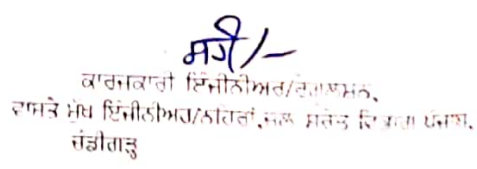 ਸਹੀ/-
ਕਾਰਜਕਾਰੀ ਇੰਜੀਨੀਅਰ/ਰੈਗੂਲੇਸ਼ਨ,
ਵਾਸਤੇ ਮੁੱਖ ਇੰਜੀਨੀਅਰ/ਨਹਿਰਾਂ, ਜਲ ਸਰੋਤ ਵਿਭਾਗ ਪੰਜਾਬ,
ਚੰਡੀਗੜ੍ਹ